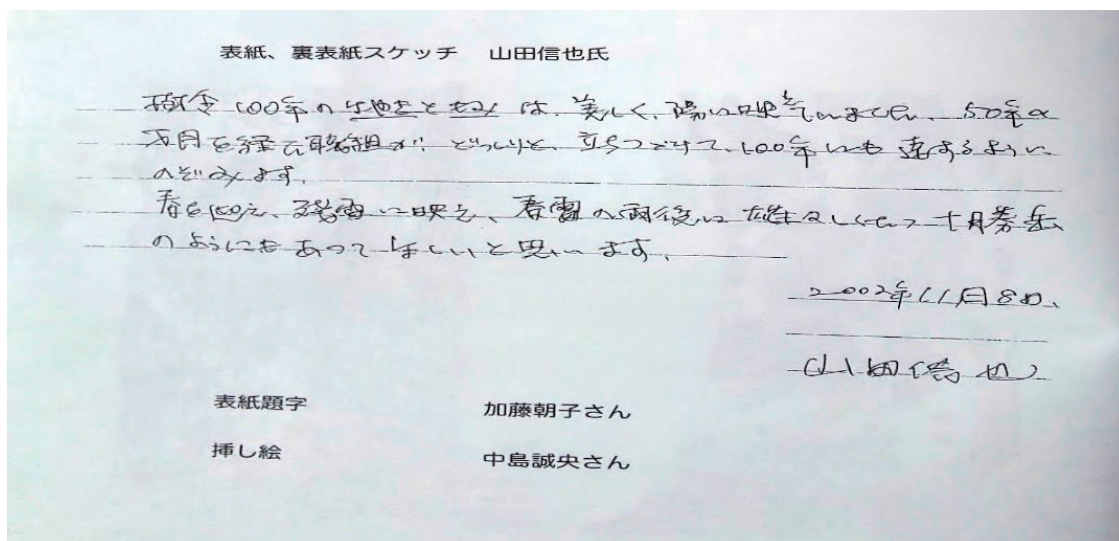 表紙、裏表紙スケッチ 山田信也氏
樹令100年のけやきともみは、美しく、陽に映えていました。50年の
年月を経て職組が、どっしりと、立ちつづけて、100年にも達するように
のぞみます。
春を伝え、残雪に映え、春雷の雨後に雄々しく立つ十勝岳
のようにもあってほしいと思います。
2002年11月8日、
(山田信也)
表紙題字 加藤朝子さん
挿し絵 中島誠央さん